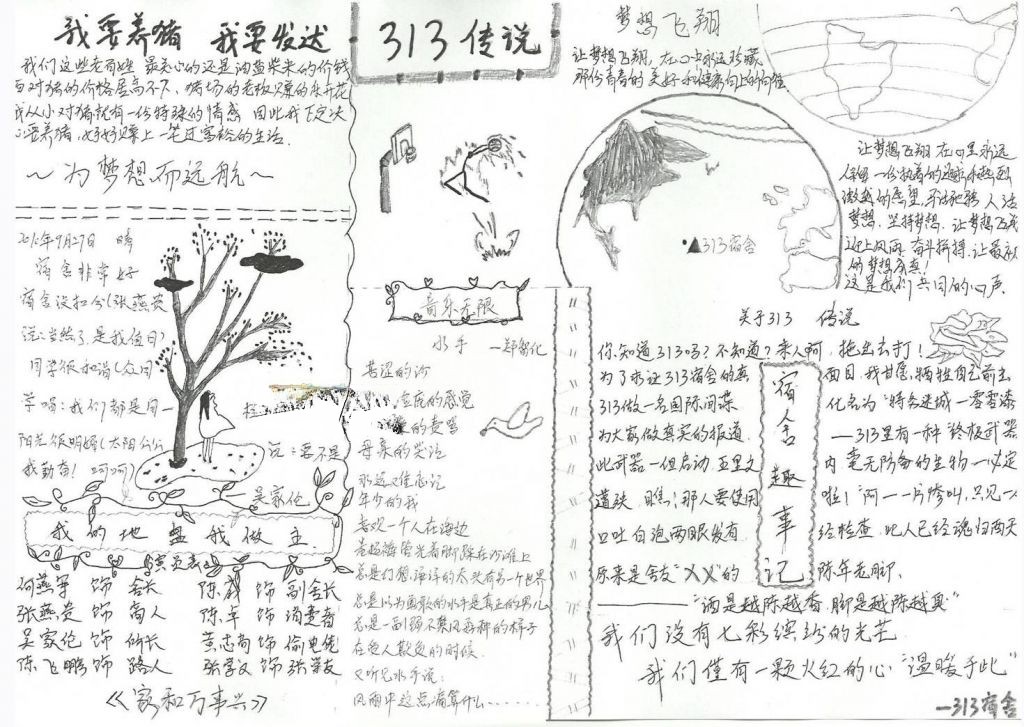 我要养猪 我要发达
我们这些老百姓 最关心的还是油盐柴米的价钱
对猪的价格居高不下、猪场的老板算的乐开花
我从小对猪就有一份特殊的情感 因此我下定决
心要养猪,好好算上一笔过富裕的生活.
~为梦想而远航~
2012年9月27日 晴
宿舍非常好
宿舍没扣分(张燕贵
说:当然了是我值日)
同学很和谐(众同
学唱:我们都是同一
阳光很明媚(太阳公公
我勤奋! 呵呵)
说:要不是
—吴家伦
我的地盘我做主
演员表
何燕军 饰 舍长
陈威 饰 副舍长
张燕贵 饰 商人
陈卓 饰 消费者
吴家伦 饰 所长
黄志尚 饰 偷电佬
陈飞鹏 饰 路人
张学友 饰 张学友
《家和万事兴》
313传说
音乐无限
水手 —郑智化
苦涩的沙
的感觉
母亲的哭泣
永远难忘记
年少的我
喜欢一个人在海边
卷起裤管光着脚踩在沙滩上
总是幻想海洋的尽头有另一个世界
总是以为勇敢的水手是真正的男儿
总是一副弱不禁风孬种的样子
在受人欺负的时候
又听见水手说:
风雨中这点痛算什么......
梦想飞翔
让梦想飞翔,在心中永远珍藏
那份青春的美好和健康向上的向往
▲313宿舍
让梦想飞翔 在心里永远
保留一份执着的追求和热烈
激越的愿望,
梦想,坚持梦想,让梦想飞
迎上风雨,奋斗拼搏,让最初
的梦想成真!
这是我们共同的心声.
关于313 传说
你知道313吗?不知道?来人啊,拖出去打!
为了求证313宿舍的真面目,我甘愿牺牲自己前去
313做一名国际间谍 化名为"特务迷城—零零漆
为大家做真实的报道. —313里有一种"终极武器
此武器一但启动 五里之内 毫无防备的生物一必定
遭殃、瞧!那人要使用啦!"阿——"一片惨叫,只见一
口吐白泡两眼发育 经检查 此人已经魂归两天
原来是舍友"XX"的 陈年老脚、
宿舍趣事记
———"酒是越陈越香,脚是越陈越臭"
我们没有七彩缤纷的光芒
我们僅有一颗火红的心"温暖于此"
—313宿舍